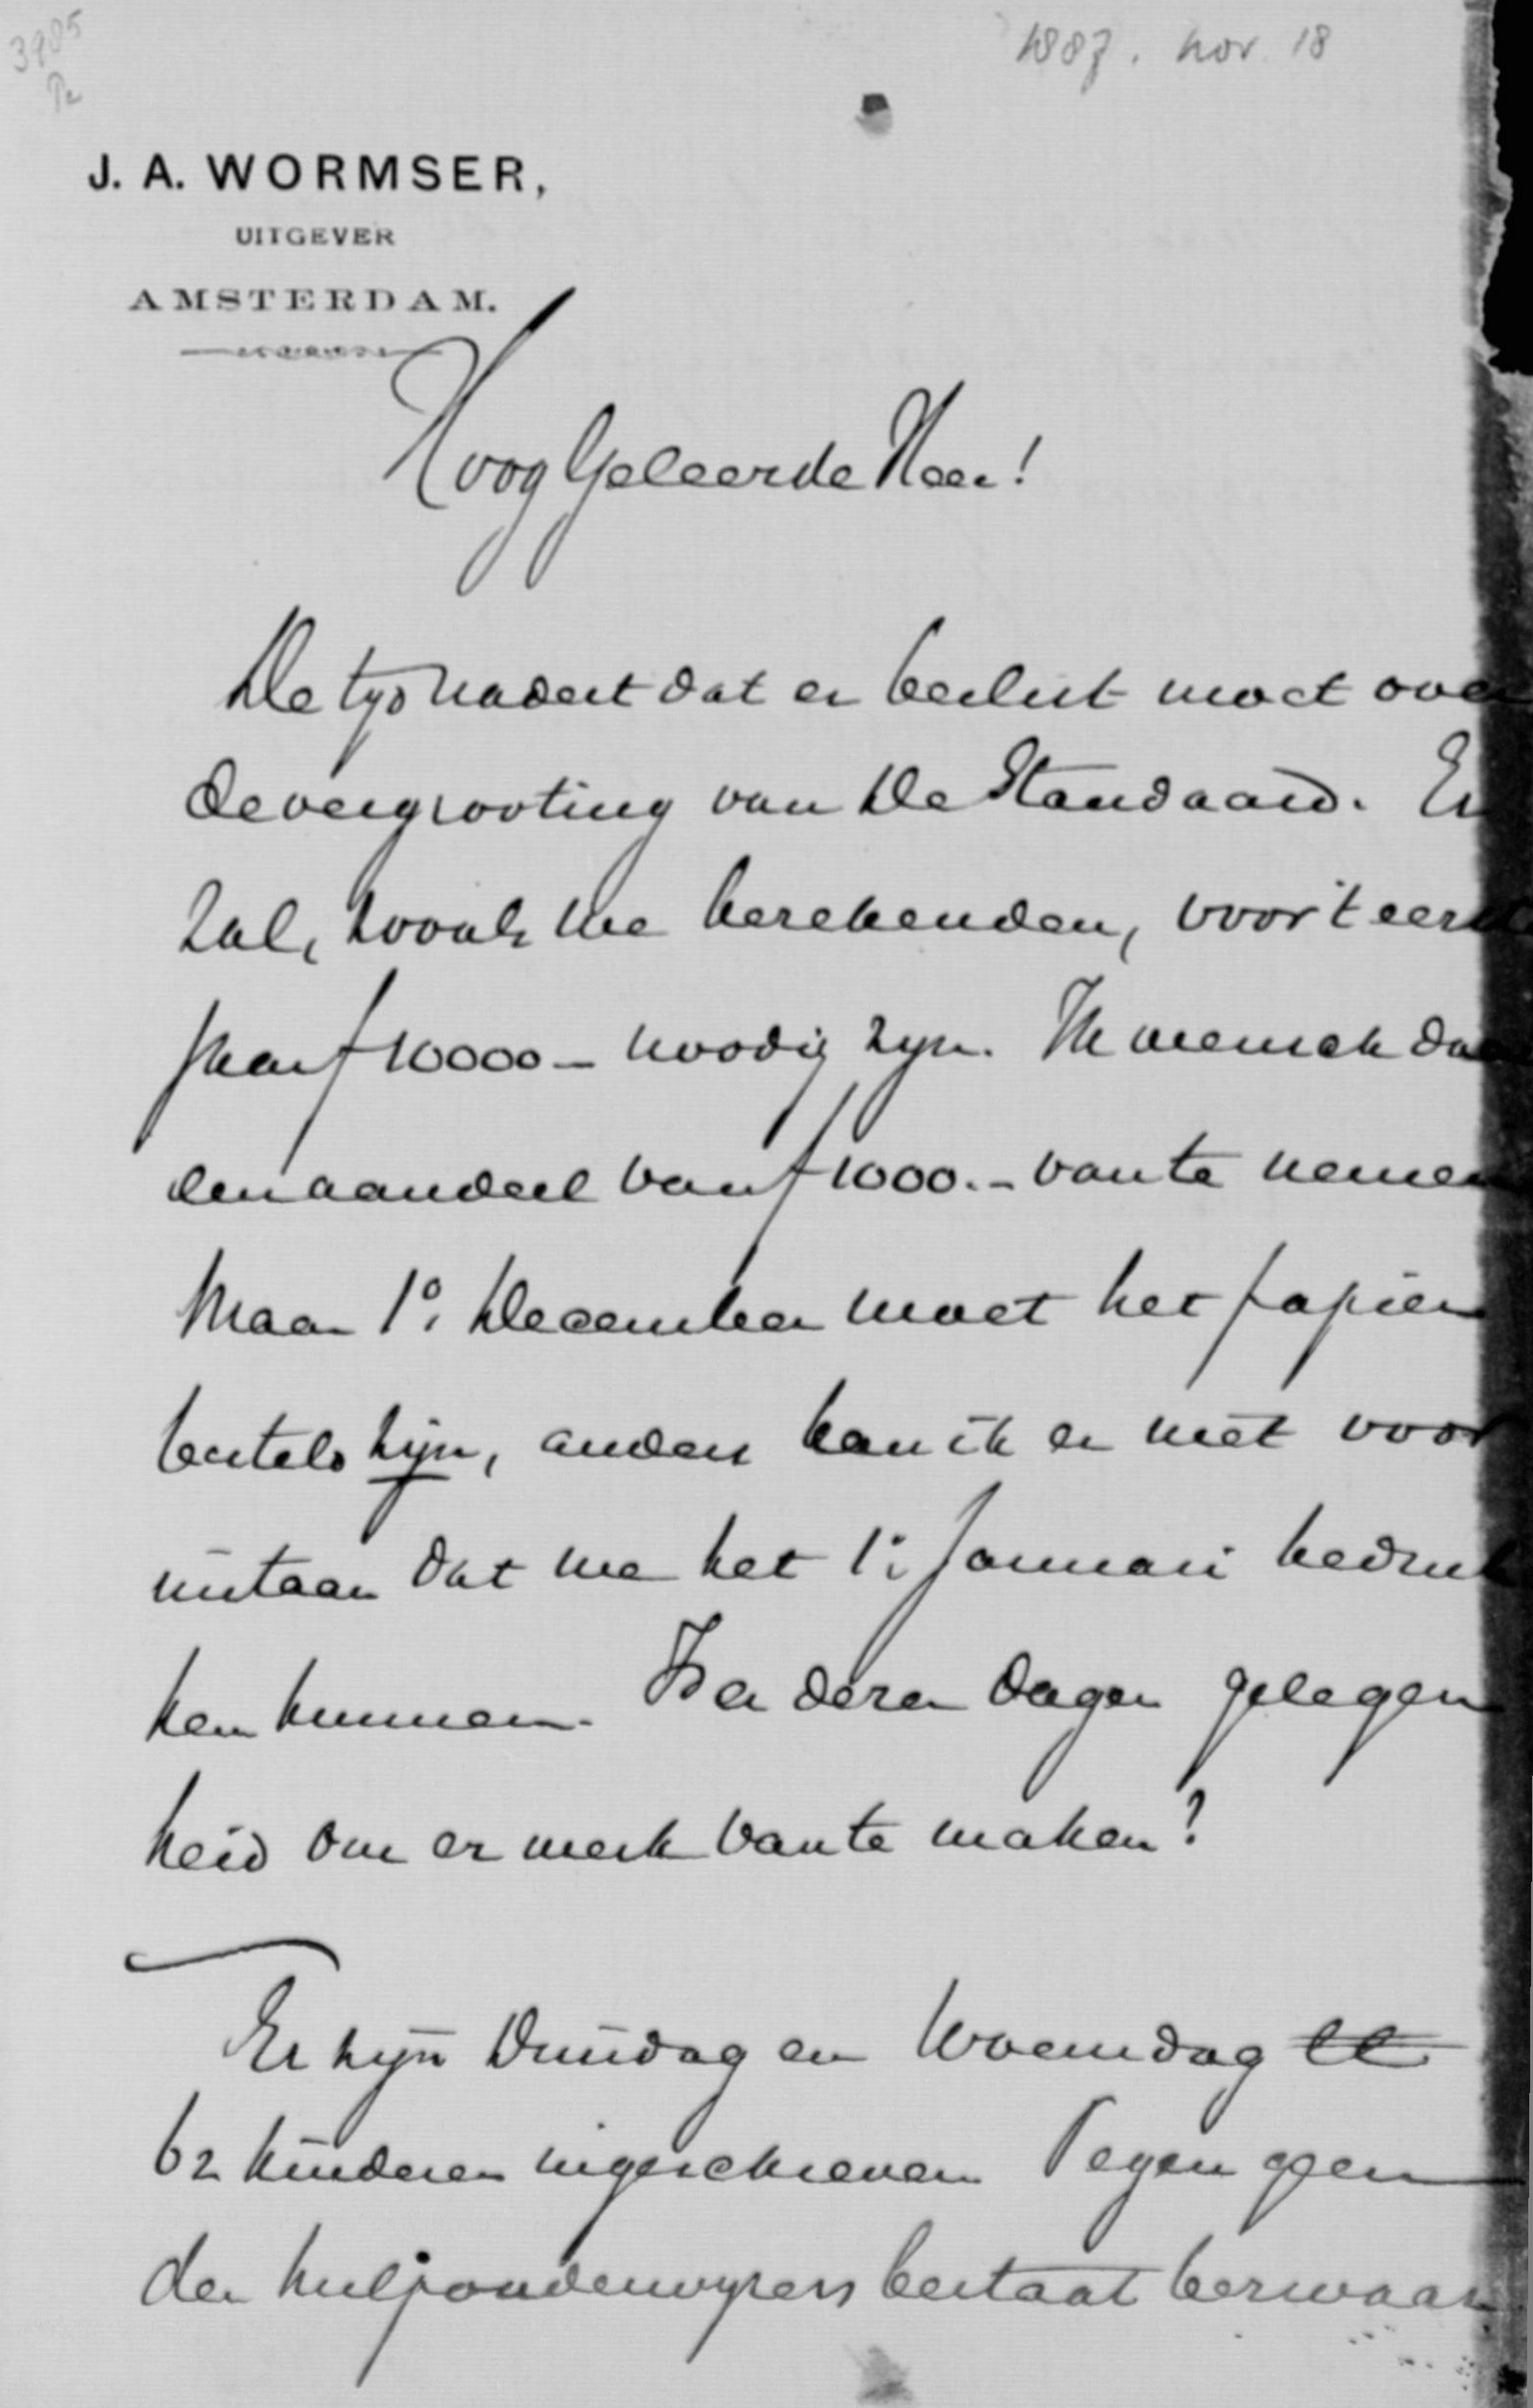 3985
1887. nov. 18
J. A. WORMSER,
UITGEVER
AMSTERDAM.
Hoog Geleerde Heer!
De tyd nadert dat er beslist moet over
de vergrooting van De Standaard. Er
zal, zooals we berekenden, voor 't eerste
jaar f 10000 - noodig zyn. Ik wensch daar
een aandeel van f 1000.- van te nemen
Maar 1o. December moet het papier
besteld zijn, anders kan ik er niet voor
instaan dat we het 1o. Januari bedruk
ken kunnen. Is er dezer dagen gelegen
heid om er werk van te maken?
Er zijn Dinsdag en Woensdag
62 kinderen ingeschreven Tegen geen
der hulponderwyzers bestaat bezwaar